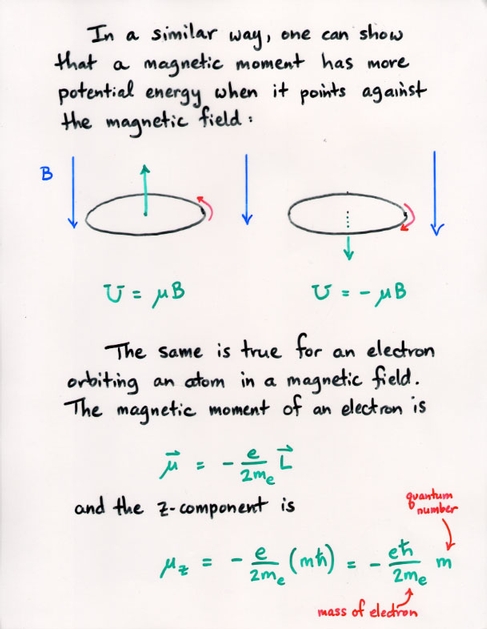 In a similar way, one can show
that a magnetic moment has more
potential energy when it points against
the magnetic field:
B
U = μB
U = -μB
The same is true for an electron
orbiting an atom in a magnetic field.
The magnetic moment of an electron is
μ⃗ = - e/2mₑ L⃗
and the z-component is
quantum
number
μ_z = - e/2mₑ (mħ) = - eħ/2mₑ m
mass of electron